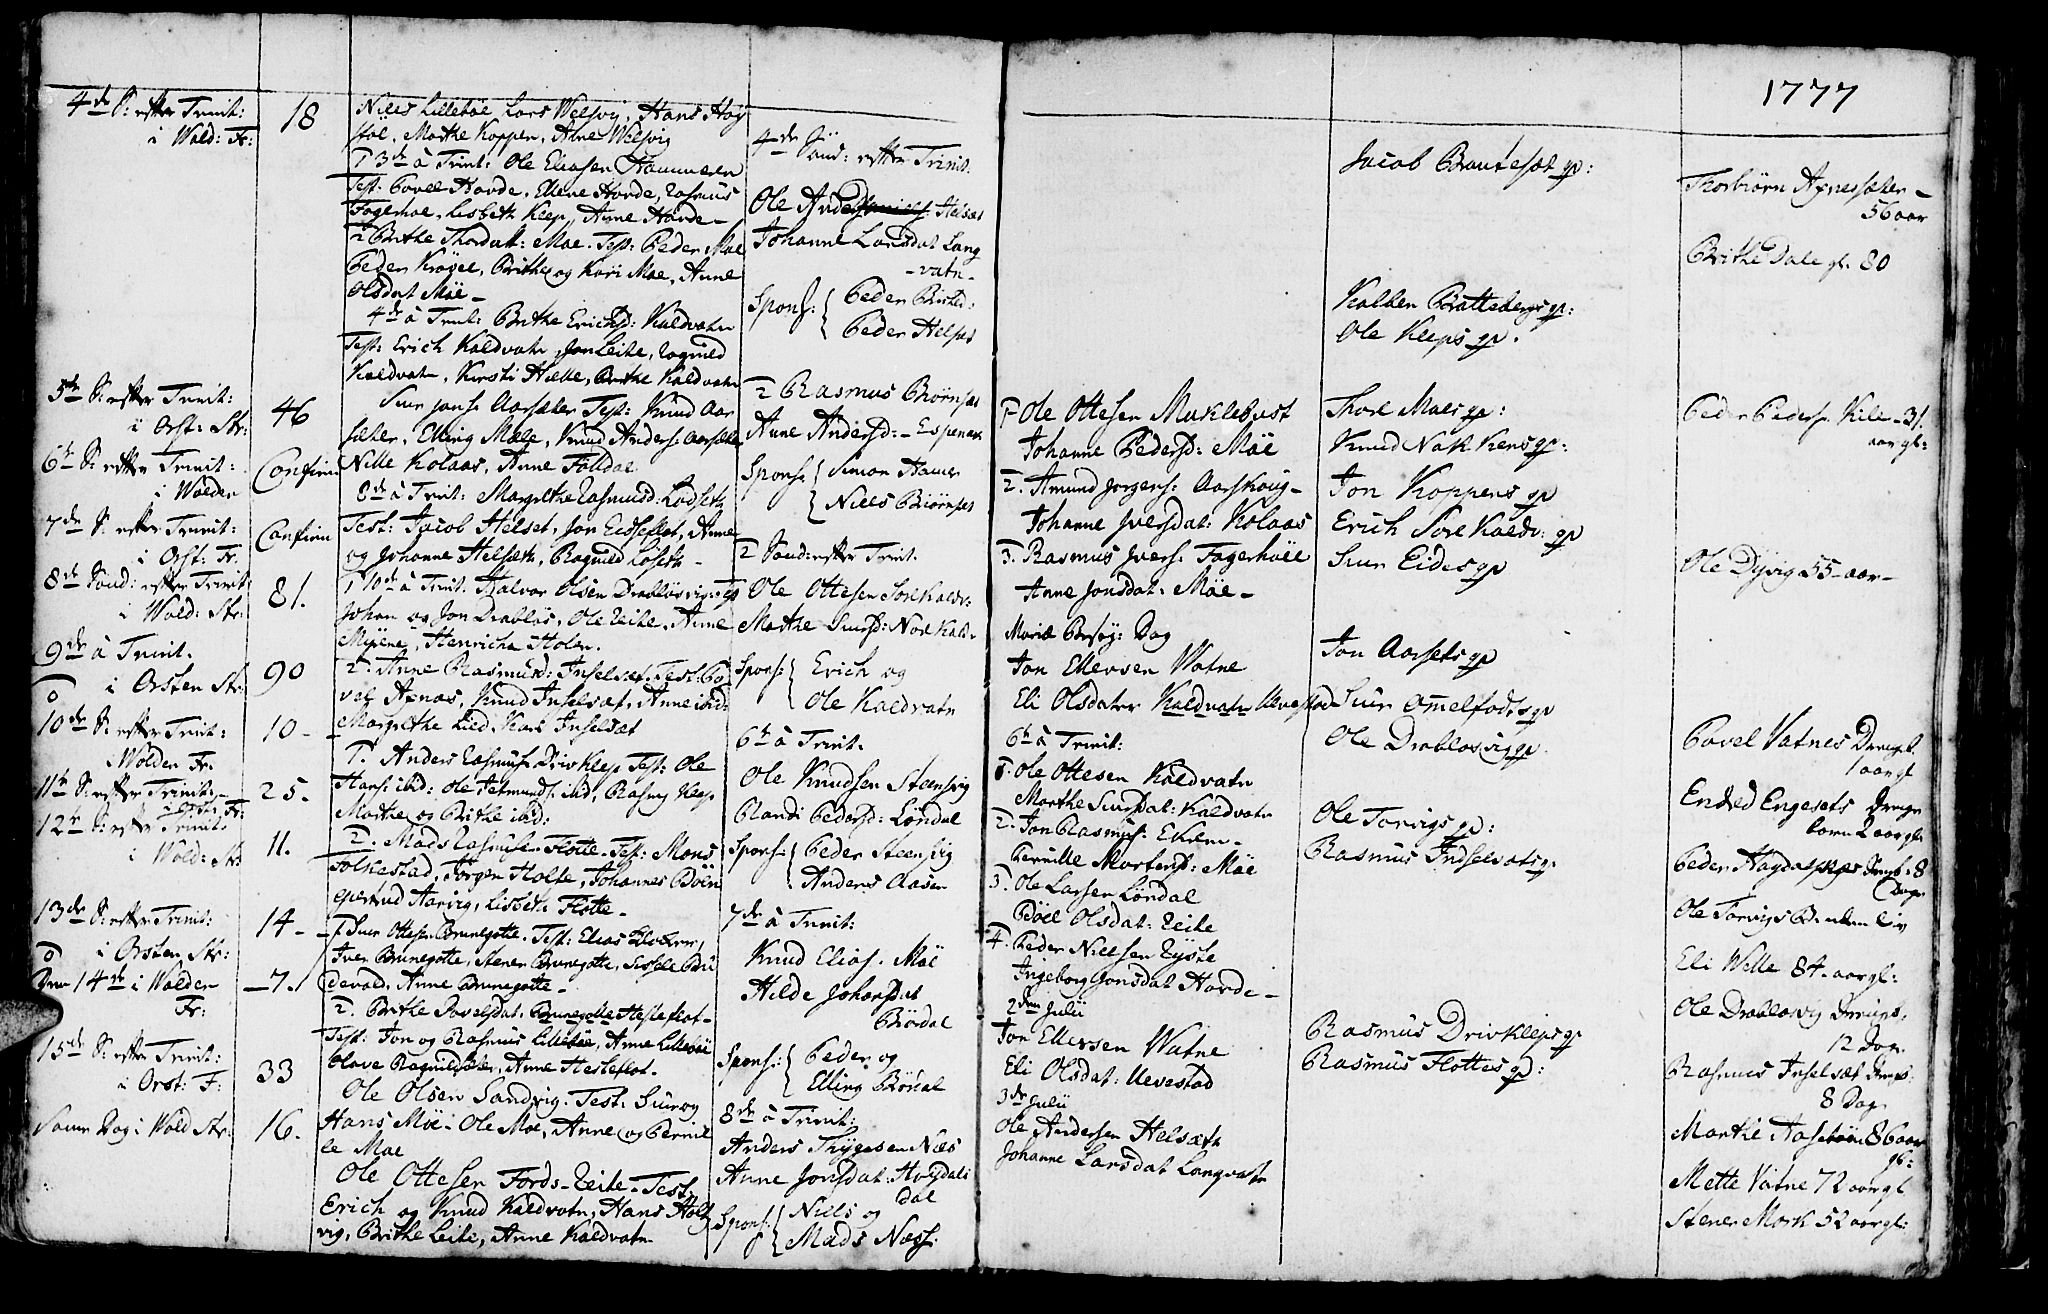 1777
4de S: efter Trinit:
i Wold: Fr:
5te S: efter Trinit:
i Orst: Str:
6te S: efter Trinit:
i Wolden
7de S: efter Trinit:
i Orst: Fr:
8de Sönd: efter Trinit:
i Wold: Str:
9de à Trinit.
i Orsten Str:
10de S: efter Trinit:
i Wolden Fr.
11te S: efter Trinit:
i Orst: Fr:
12te S: efter Trinit:
i Wold: Str:
13de S: efter Trinit:
i Orsten Str:
Den 14de i Wolden
Fr:
15de S: efter Trinit:
i Orst: F:
Samme Dag i Wold Str:
18
46
Confirm
Confirm
81.
90
10-
25.
11.
14-
-7.
33
16.
Niels Lillebøe Lars Welsvig, Hans Høy
Marthe Koppen, Anne Welsvig
1 3de à Trinit: Ole Eliasen Hammeren
Test: Povel Hovde, Ellene Hovde, Rasmus
Fogerhoe, Lisbeth Klep, Anne Hovde-
2 Brithe Thordatt: Moe. Test: Peder Moe
Peder Krøvel, Brithe og Kari Moe, Anne
Olsdat Möe-
4de à Trinit: Brithe Erichsd: Kaldvatn
Test: Erich Kaldvatn, Jon Leite, Ragnild
Kaldvatn, Kirsti Helle, Brithe Kaldvatn
Siur Jonse Aarsæter Test: Knud Aar
sæter, Elling Mæle, Knud Anders: Aarsæter
Nille Kolaas, Anne Folldal
8de à Trinit: Margrethe Rasmusd: Lødseth
Test: Jacob Helset, Jon Eidseflot, Anne
og Johanne Helseth, Ragnild Løseth-
1 10de à Trinit. Halvor Olsen Drabløsvig. Test
Johan og Jon Drabløs, Ole Leite, Anne
Myrene, Henricha Holen.
2. Anne Rasmusd: Inselsæt. Test: Po
vel Aznæs, Knud Inselsæt, Anne ibid:
Margrethe Lied, Kari Inselsæt
1. Anders Rasmuss: Drivklep Test: Ole
Hans: ibid: Ole Petmunds: ibid, Rasmus Klep
Marthe og Brithe ibid:
2. Mads Rasmuss: Flotte. Test: Mons
Folkestad, Jørgen Holte, Johannes Boën
Giertrud Aarvig, Lisbeth Flotte-
1 Siur Ottesen Brunegotte. Test: Elias Klokker,
Iver Brunegotte, Stener Brunegotte, Sissele Bru
devold, Anne Brunegotte-
2. Brithe Povelsdat: Brunegotte Hesteflot-
Test: Jon og Rasmus Lillebøe, Anne Lillebøe
Olave Ragnildsæter, Anne Hesteflot.
Ole Olsen Sandvig. Test: Siur og
Hans Möe, Ole Moe, Anne og Pernil
le Moe
Ole Ottesen Fords-Leite. Test:
Erich og Knud Kaldvatn, Hans Holt
vig, Brithe Leite, Anne Kaldvatn-
4de Sönd: efter Trinit.
Ole Anders Helsæt
Johanne Larsdat Lang
-vatn-
Spons: Peder
Peder Helsæt
2 Rasmus Biørnsæt
Anne Andersd:- Espenæs
Spons: Simon Hamer
Niels Biørnset
2 Sönd: efter Trinit:
Ole Ottesen Sørekaldv:
Marthe Siursd: Nore Kaldv
Spons: Erich og
Ole Kaldvatn
6te à Trinit.
Ole Knudsen Steensvig
Blandi Pedersd: Löndal
Spons: Peder Steensvig
Anders Aasen
7de à Trinit:
Knud Elias. Möe
Hilde Johansdat
Bördal
Spons: Peder og
Elling Bördal
8de à Trinit:
Anders Thygesen Næs
Anne Jonsdat: Høydals
dal
Spons: Niels og
Mads Næss:
1- Ole Ottesen Muklebust
Johanne Pedersd: Möe
2. Amund Jørgens: Aarskoug-
Johanne Iversdat: Kolaas
3. Rasmus Ivers: Fogerhole
Anne Jonsdat: Möe-
Mariæ Besøg: Dag
Jon Ellevsen Watne
Eli Olsdater Kaldvatn Uevestad
6te à Trinit:
1. Ole Ottesen Kaldvatn
Marthe Siursdat: Kaldvatn
2. Jon Rasmuss: Ekrem-
Pernille Mortensd: Möe
3. Ole Larsen Löndal
Böel Olsdat: Leite
4. Peder Nielsen Ryste
Ingeborg Jonsdat Hovde-
2den Julii
Jon Ellevsen Watne
Eli Olsdat: Uevestad
3de Julii
Ole Andersen Helsæth
Johanne Larsdat Langvatn
Jacob Brautesæt gp:
Kolben Brattebergs gp:
Ole Kleps gp.
Thore Moes gp:
Knud Nakkens gp:
Jon Koppens gp
Erich Sore Kaldv: gp
Siur Eides gp
Jon Aarsets gp
Siur Omelfods gp
Ole Drabløsvig gp.
Ole Torvigs gp:
Rasmus Indselvots gp
Rasmus Drivkleps gp
Rasmus Flottes gp:
Thorbiørn Aznessæter-
56 aar
Brithe Dale gl. 80
Peder Peders: Kile-31
aar gl:
Ole Dyvig 55-aar-
Povel Vatnes Drengb.
1 aar gl
Endred Engesets Drenge
barn 2 aar gl:
Peder Drengb: 8
Dage
Ole Torvigs B.
Eli Welle 84-aar gl:
Ole Drabløsvig Drengb.
12 Dage
Rasmus Inselsæt Drengb:
8 Dag
Marthe Aasebøen 86 aar
gl:
Mette Vatne 72 aar gl
Stener Mork 52 aar gl: